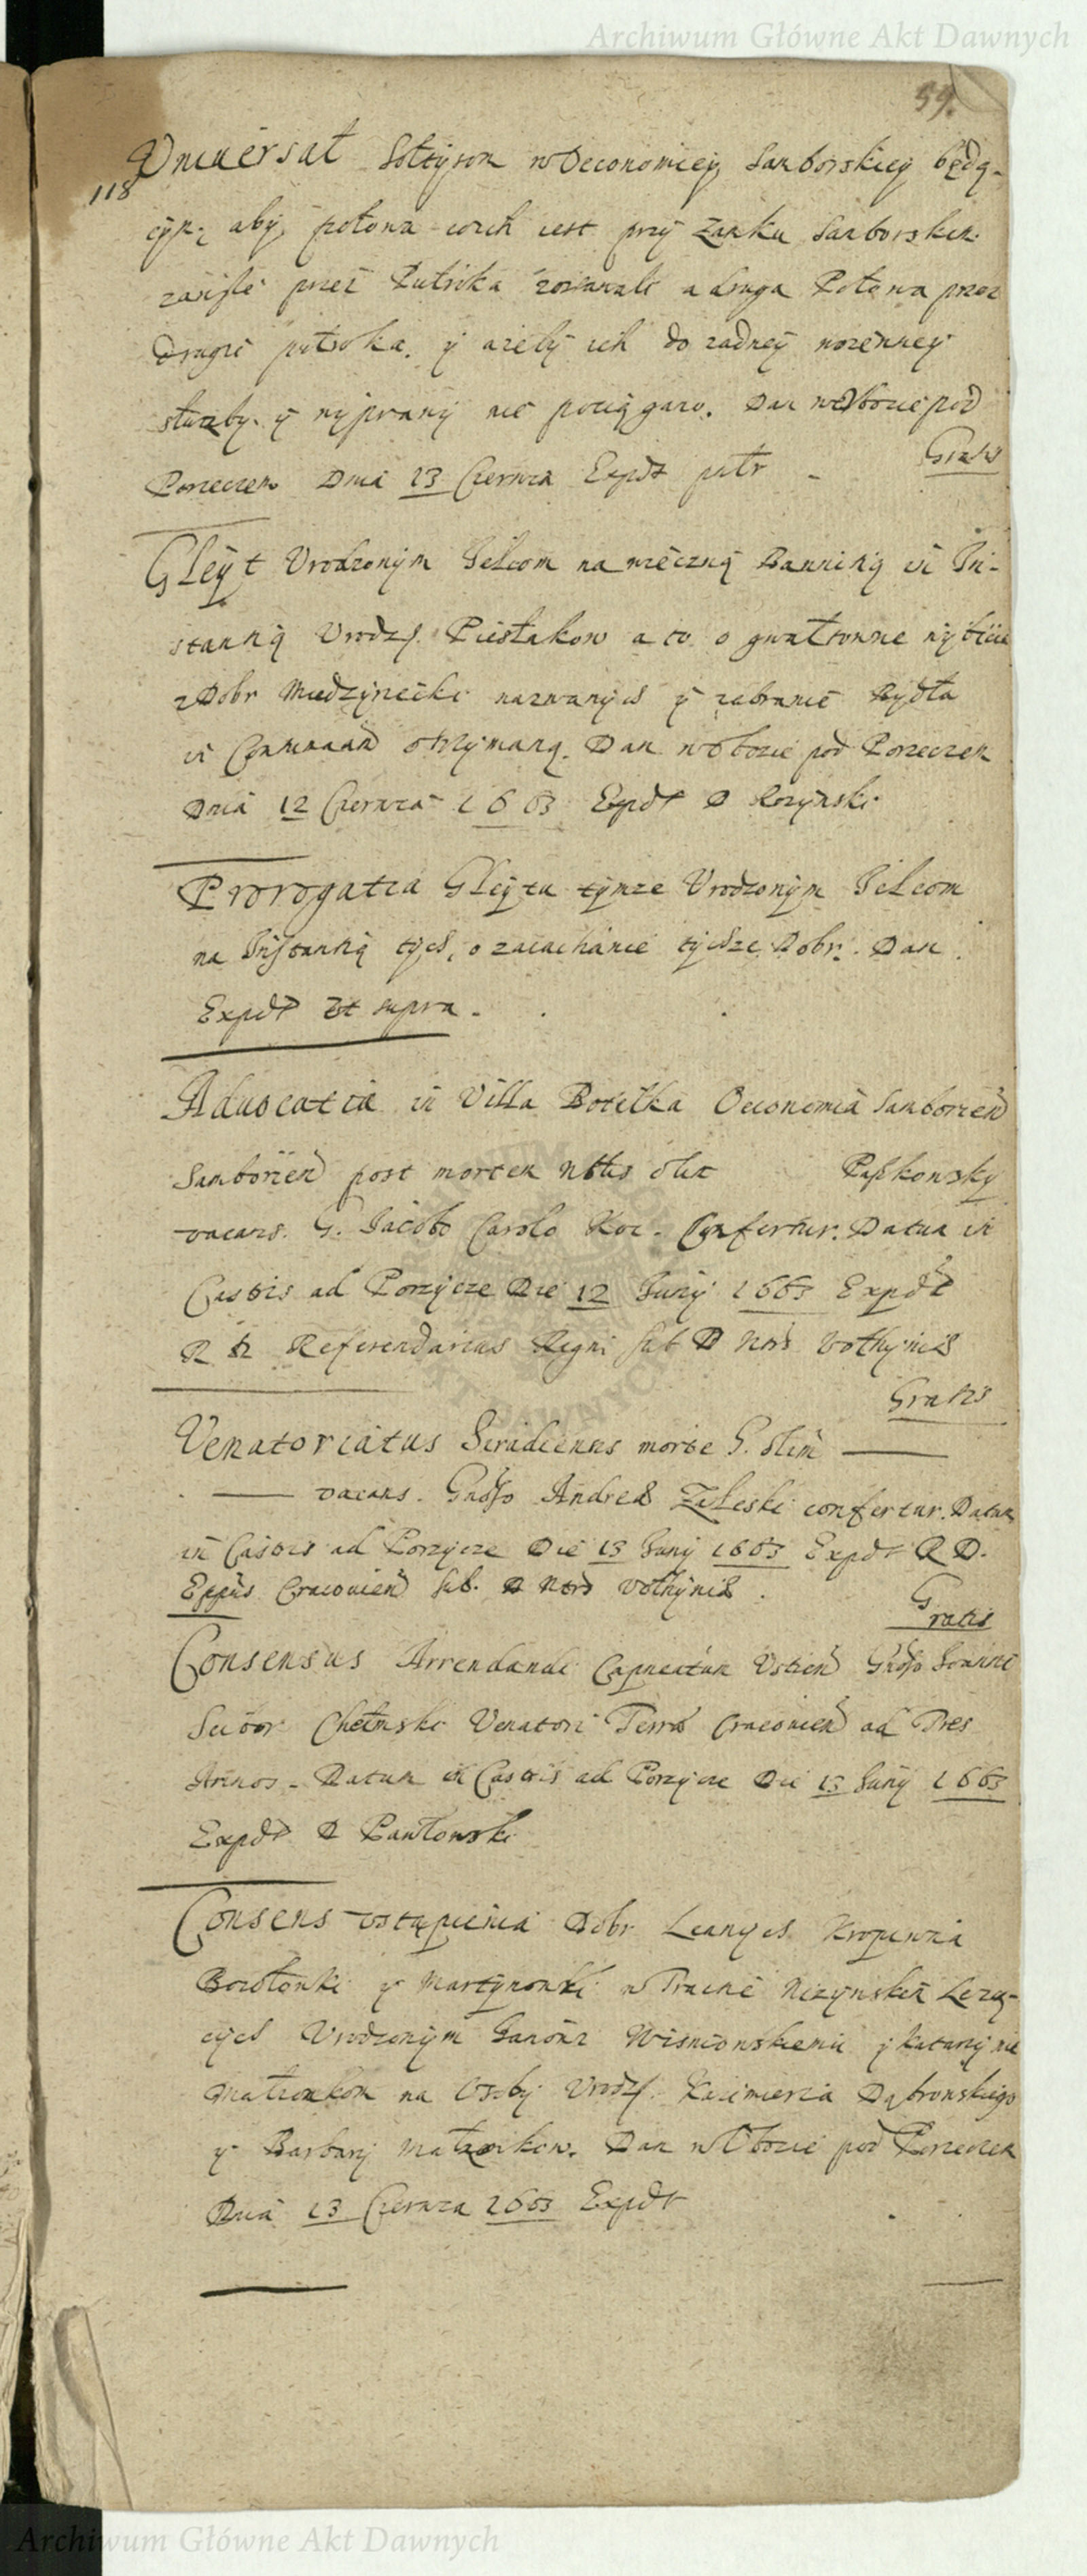 Archiwum Główne Akt Dawnych
59.
118
Vniuersał Sołtysom w Oeconomiey Samborskiey będą-
cym; aby połowa ich iest przy Zamku Samborskim
zawsze przez Pułroka zostawali a druga Połowa przez
drugie pułroka. y ażeby ich do żadney woienney
służby y wyprawy nie pociągano. Dan w Obozie pod
Porzeczem Dnia 13 Czerwca Expdt
Gratis
Gleyt Vrodzonym Jelcom na wieczną Bannitią in In-
stantią Vrodz. Piestakow a to o gwałtowne wybicie
z Dobr Miedzyrzecki nazwanych y zabranie Bydła
in Contumam otrzymaną. Dan w Obozie pod Porzeczem
Dnia 12 Czerwca 1663 Expdt D Rozynski
Prorogatia Gleytu tymze Vrodzonym Jelcom
na Instantią tych, o zaiachanie tychze Dobr. Dan
Expdt Vt supra.
Aduocatia in Villa Botelka Oeconomia Samborien
Samborien post mortem Nblis olim Paszkowsky
vacans. G. Jacobo Carolo Koc. Confertur. Datum in
Castris ad Porzycze Die 12 Juny 1663 Expdt
R D Referendarius Regni sub D Nota Volhyniae
Gratis
Venatoriatus Siradiensis morte G. olim
vacans. Gnoso Andreae Zaleski confertur. Datum
in Castris ad Porzycze Die 13 Juny 1663 Expdt R D.
Eppus Cracouien sub. D Nota Volhyniae.
Gratis
Consensus Arrendandi Capneatum Vstien Gnoso Joanni
Scibor Chełmski Venatori Terrae Cracouien ad Tres
Annos. Datum in Castris ad Porzycze Die 13 Juny 1663
Expdt D Pawłowski
Consens vstąpienia Dobr Leanych Kropiwna
Borotowki y Martynowki w Tracie Niezynskim Leżą-
cych Vrodzonym Janowi Wisniowskiemu y Katarzynie
Małzonkom na Osoby Vrodz. Kazimierza Dąbrowskiego
y Barbary Małzonkow. Dan w Obozie pod Porzeczem
Dnia 13 Czerwca 1663 Expdt
Archiwum Główne Akt Dawnych